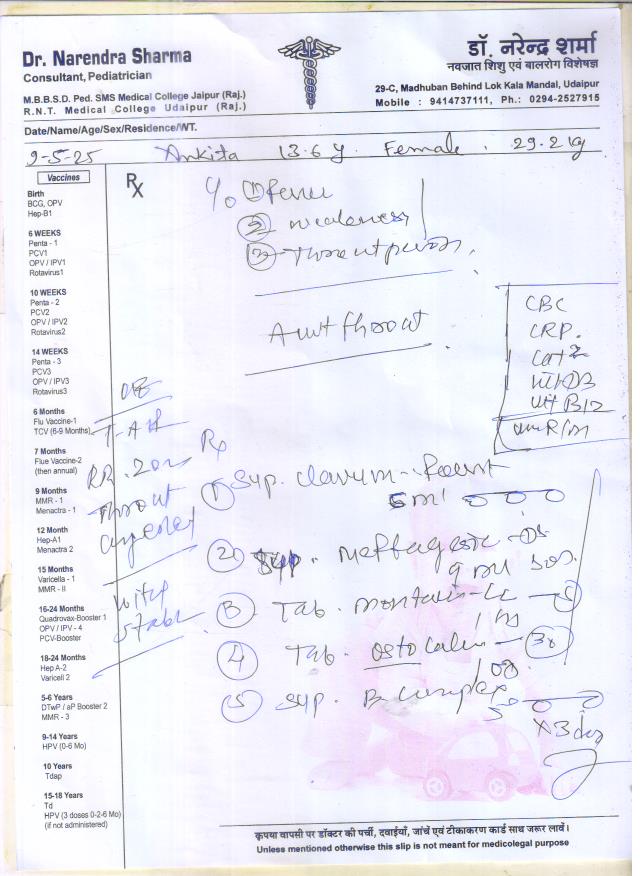 Dr. Narendra Sharma
Consultant, Pediatrician
M.B.B.S.D. Ped. SMS Medical College Jaipur (Raj.)
R.N.T. Medical College Udaipur (Raj.)
डॉ. नरेन्द्र शर्मा
नवजात शिशु एवं बालरोग विशेषज्ञ
29-C, Madhuban Behind Lok Kala Mandal, Udaipur
Mobile : 9414737111, Ph.: 0294-2527915
Date/Name/Age/Sex/Residence/WT.
9-5-25 Ankita 13.6 y. Female. 29.2 kg
Vaccines
Birth
BCG, OPV
Hep-B1
6 WEEKS
Penta - 1
PCV1
OPV / IPV1
Rotavirus1
10 WEEKS
Penta - 2
PCV2
OPV / IPV2
Rotavirus2
14 WEEKS
Penta - 3
PCV3
OPV / IPV3
Rotavirus3
6 Months
Flu Vaccine-1
TCV (6-9 Months)
7 Months
Flue Vaccine-2
(then annual)
9 Months
MMR - 1
Menactra - 1
12 Month
Hep-A1
Menactra 2
15 Months
Varicella - 1
MMR - II
16-24 Months
Quadrovax-Booster 1
OPV / IPV - 4
PCV-Booster
18-24 Months
Hep A-2
Varicell 2
5-6 Years
DTwP / aP Booster 2
MMR - 3
9-14 Years
HPV (0-6 Mo)
10 Years
Tdap
15-18 Years
Td
HPV (3 doses 0-2-6 Mo)
(if not administered)
Rx
c/o ① Fever
② weakness
③ Throat pain
Acute throat
CBC
CRP.
Vit D3
Vit B12
O/E
Throat
Rx
① Syp. Clavum - Forte
5 ml
② Syp. Meftagesic - DS
9 ml SOS.
③ Tab. Montavin-LC - 5
④ Tab. Osto Calcium - 30
1 OD
⑤ Syp. B Complex
5
x 3 day
कृपया वापसी पर डॉक्टर की पर्ची, दवाईयाँ, जांचें एवं टीकाकरण कार्ड साथ जरूर लावें।
Unless mentioned otherwise this slip is not meant for medicolegal purpose